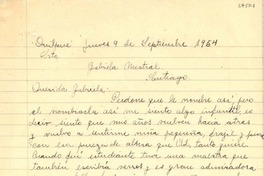 Quilpué Jueves 9 de Septiembre 1954
Srta
Gabriela Mistral
Santiago
Querida Gabriela:
Perdone que la nombre así, pero
al nombrarla así me siento algo infantil, es
decir siento que mis años vuelven hacia atrás
y vuelvo a sentirme niña pequeña, frágil y pura
con esa pureza de alma que Ud. tanto quiere.
Cuando fuí estudiante tuve una maestra que
también escribía versos y es grande admiradora